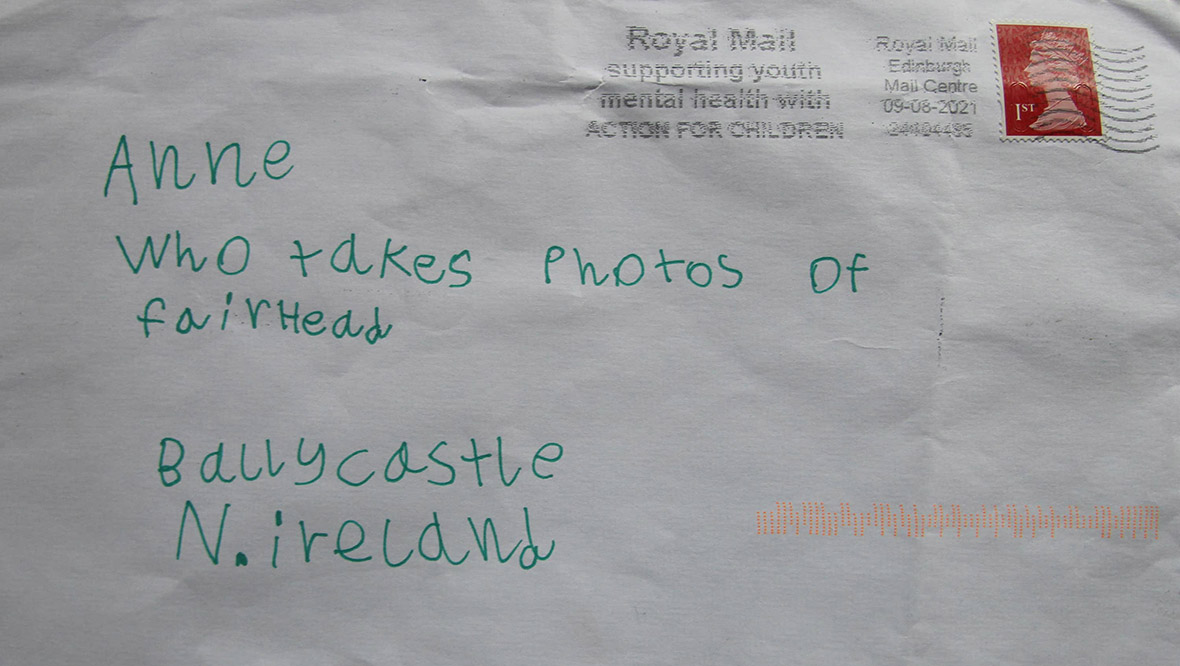 Royal Mail
supporting youth
mental health with
ACTION FOR CHILDREN
Royal Mail
Edinburgh
Mail Centre
09-08-2021
1ST
Anne
Who takes Photos Of
fairHead
Ballycastle
N.ireland